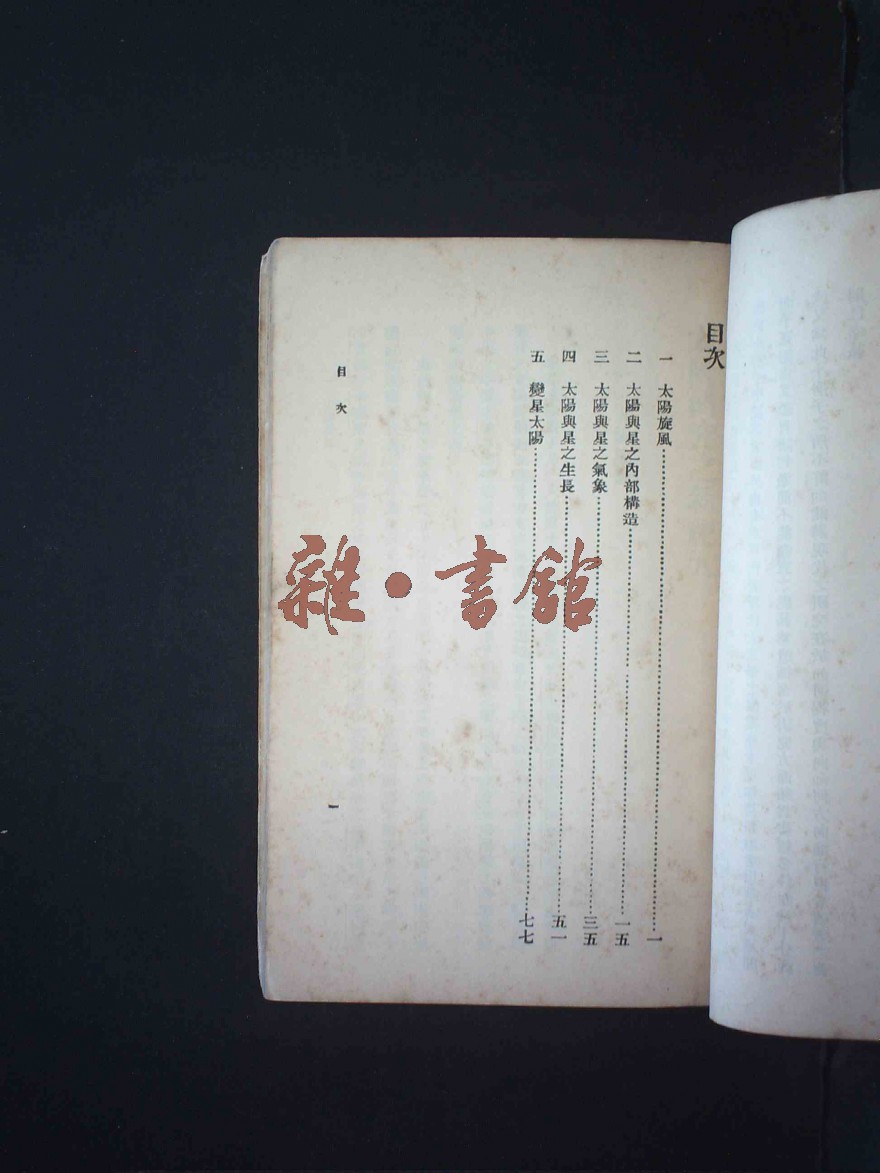 目次
一 太陽旋風……一
二 太陽與星之內部構造……一五
三 太陽與星之氣象……三五
四 太陽與星之生長……五一
五 變星太陽……七七
目次
一
雜·書館